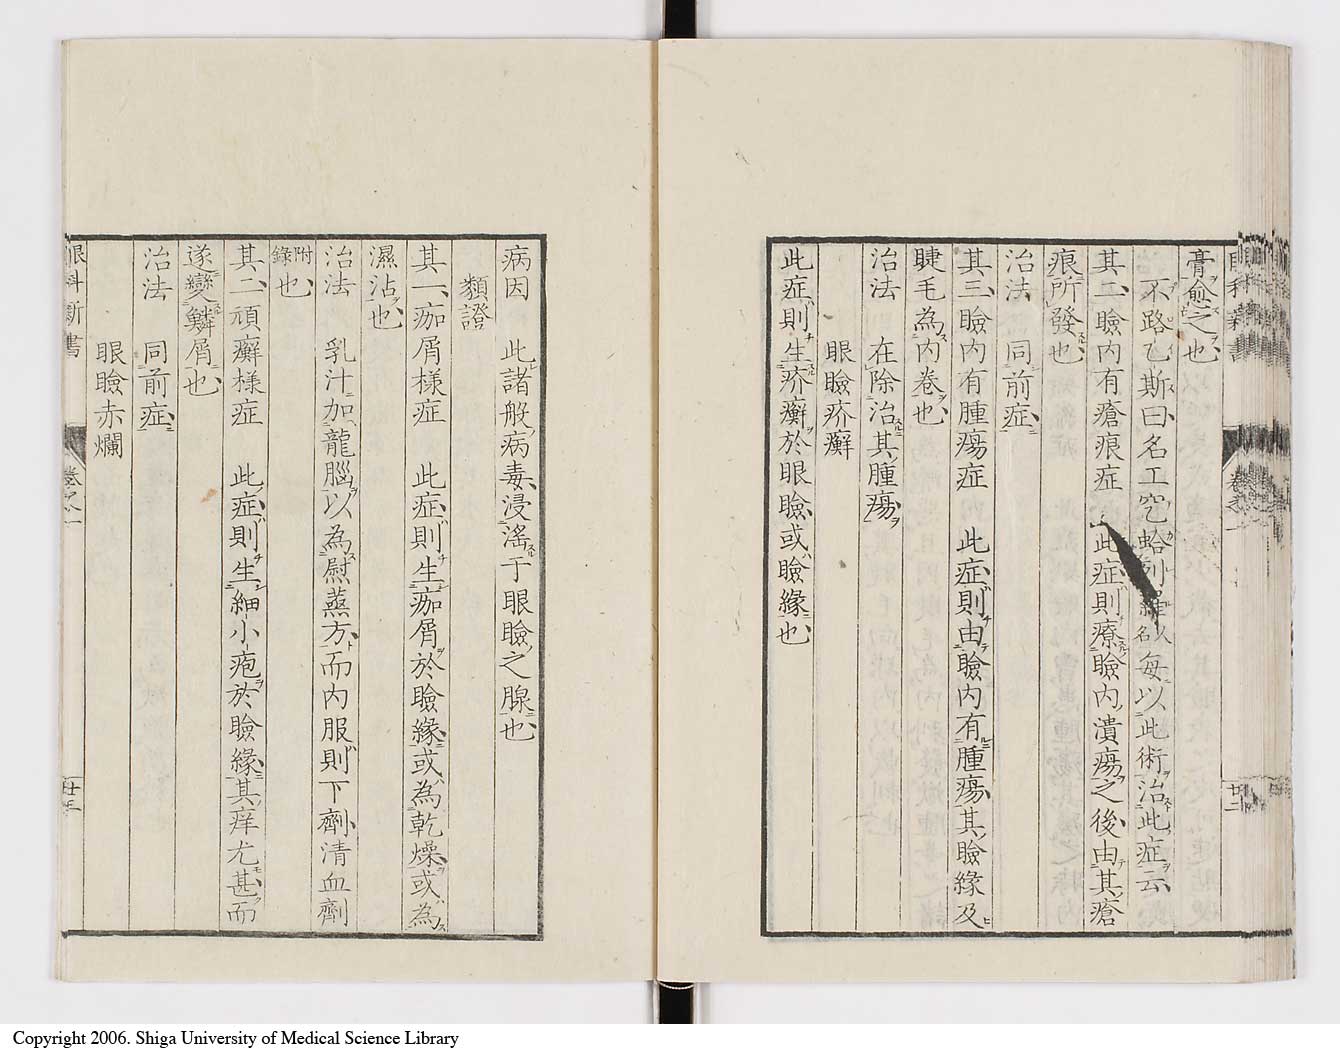 膏愈之也、
不路乙斯曰名工空蛤列羅人名每以此術治此症云
其二、瞼内有瘡痕症 此症則療瞼内潰瘍之後、由其瘡
痕所發也、
治法 同前症、
其三、瞼内有腫瘍症 此症則由瞼内有腫瘍、其瞼緣及
睫毛為内卷也、
治法 在除治其腫瘍、
眼瞼疥癬
此症則生疥癬於眼瞼、或瞼緣也、
卷之一
廿二
病因 此諸般病毒、浸淫于眼瞼之腺也、
類證
其一、痂屑様症 此症則生痂屑於瞼緣、或為乾燥、或為
濕沾也、
治法 乳汁加龍腦以為慰蒸方、而内服則下劑、清血劑
附錄也、
其二、頑癬様症 此症則生細小疱於瞼緣、其痒尤甚、而
遂變鱗屑也、
治法 同前症、
眼瞼赤爛
眼科新書
卷之一
廿三
Copyright 2006. Shiga University of Medical Science Library